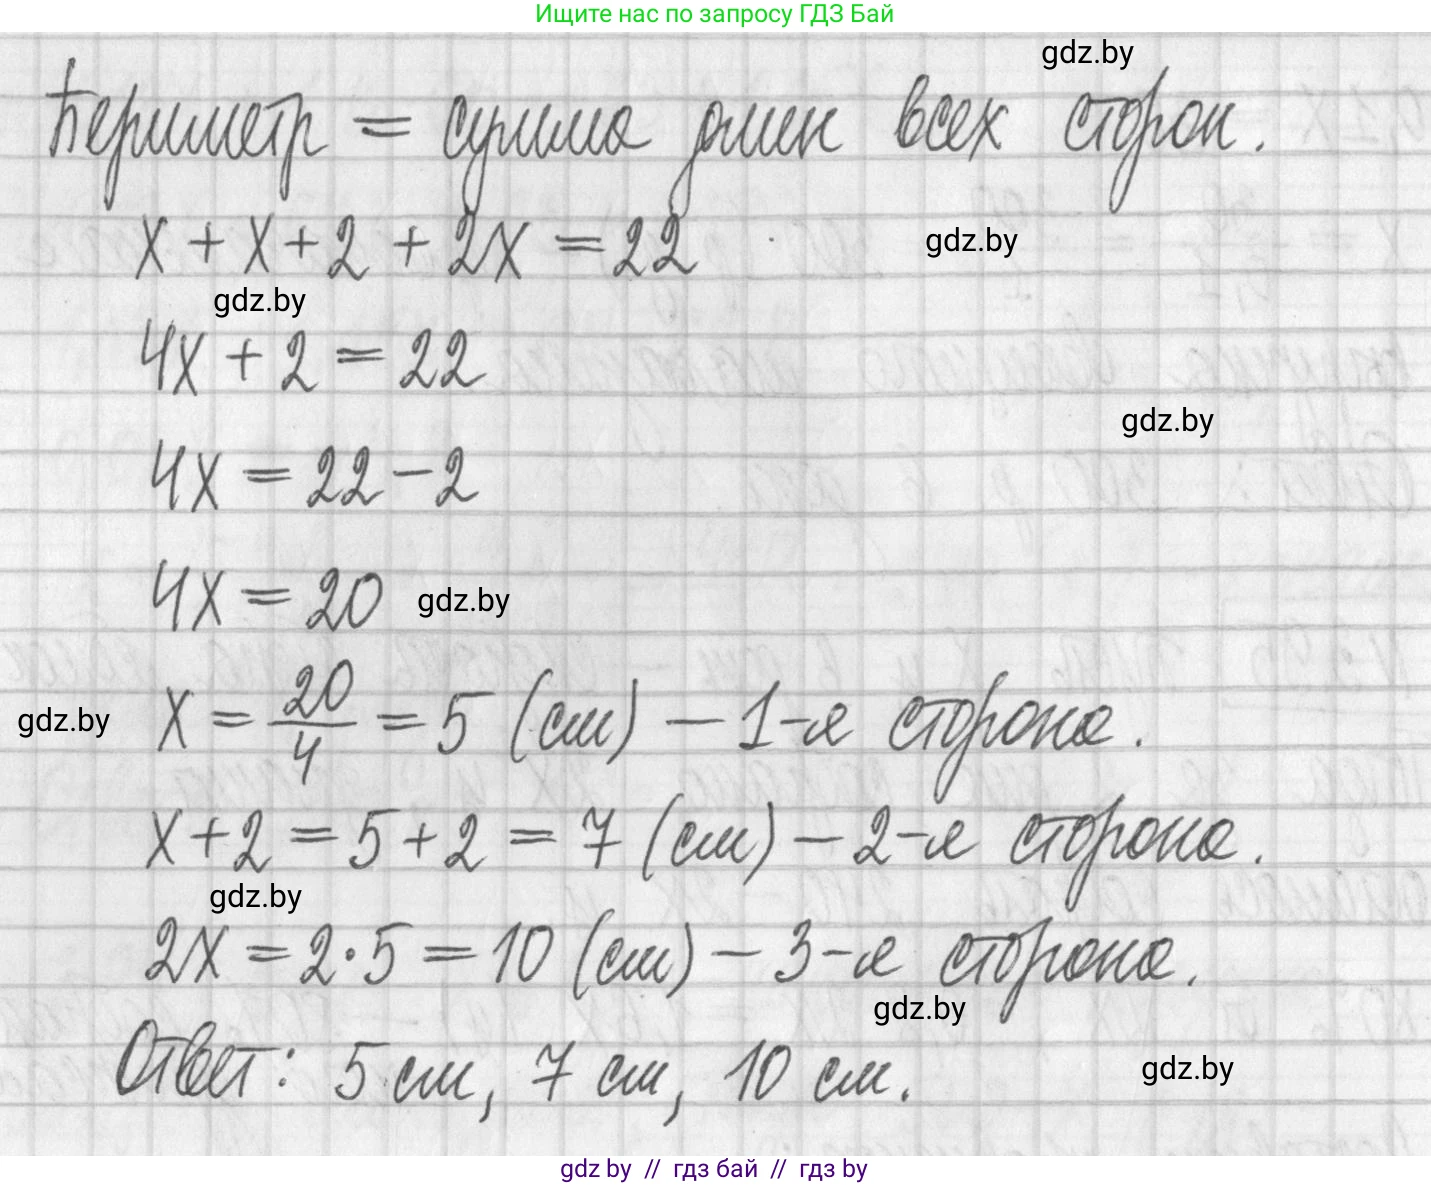 Ищите нас по запросу ГДЗ Бай
gdz.by
Периметр = сумма длин всех сторон.
x + x + 2 + 2x = 22
gdz.by
gdz.by
4x + 2 = 22
gdz.by
4x = 22 - 2
4x = 20 gdz.by
gdz.by x = 20/4 = 5 (см) — 1-я сторона.
x + 2 = 5 + 2 = 7 (см) — 2-я сторона.
gdz.by
2x = 2·5 = 10 (см) — 3-я сторона.
gdz.by
Ответ: 5 см, 7 см, 10 см.
gdz.by
gdz by // гдз бай // гдз by